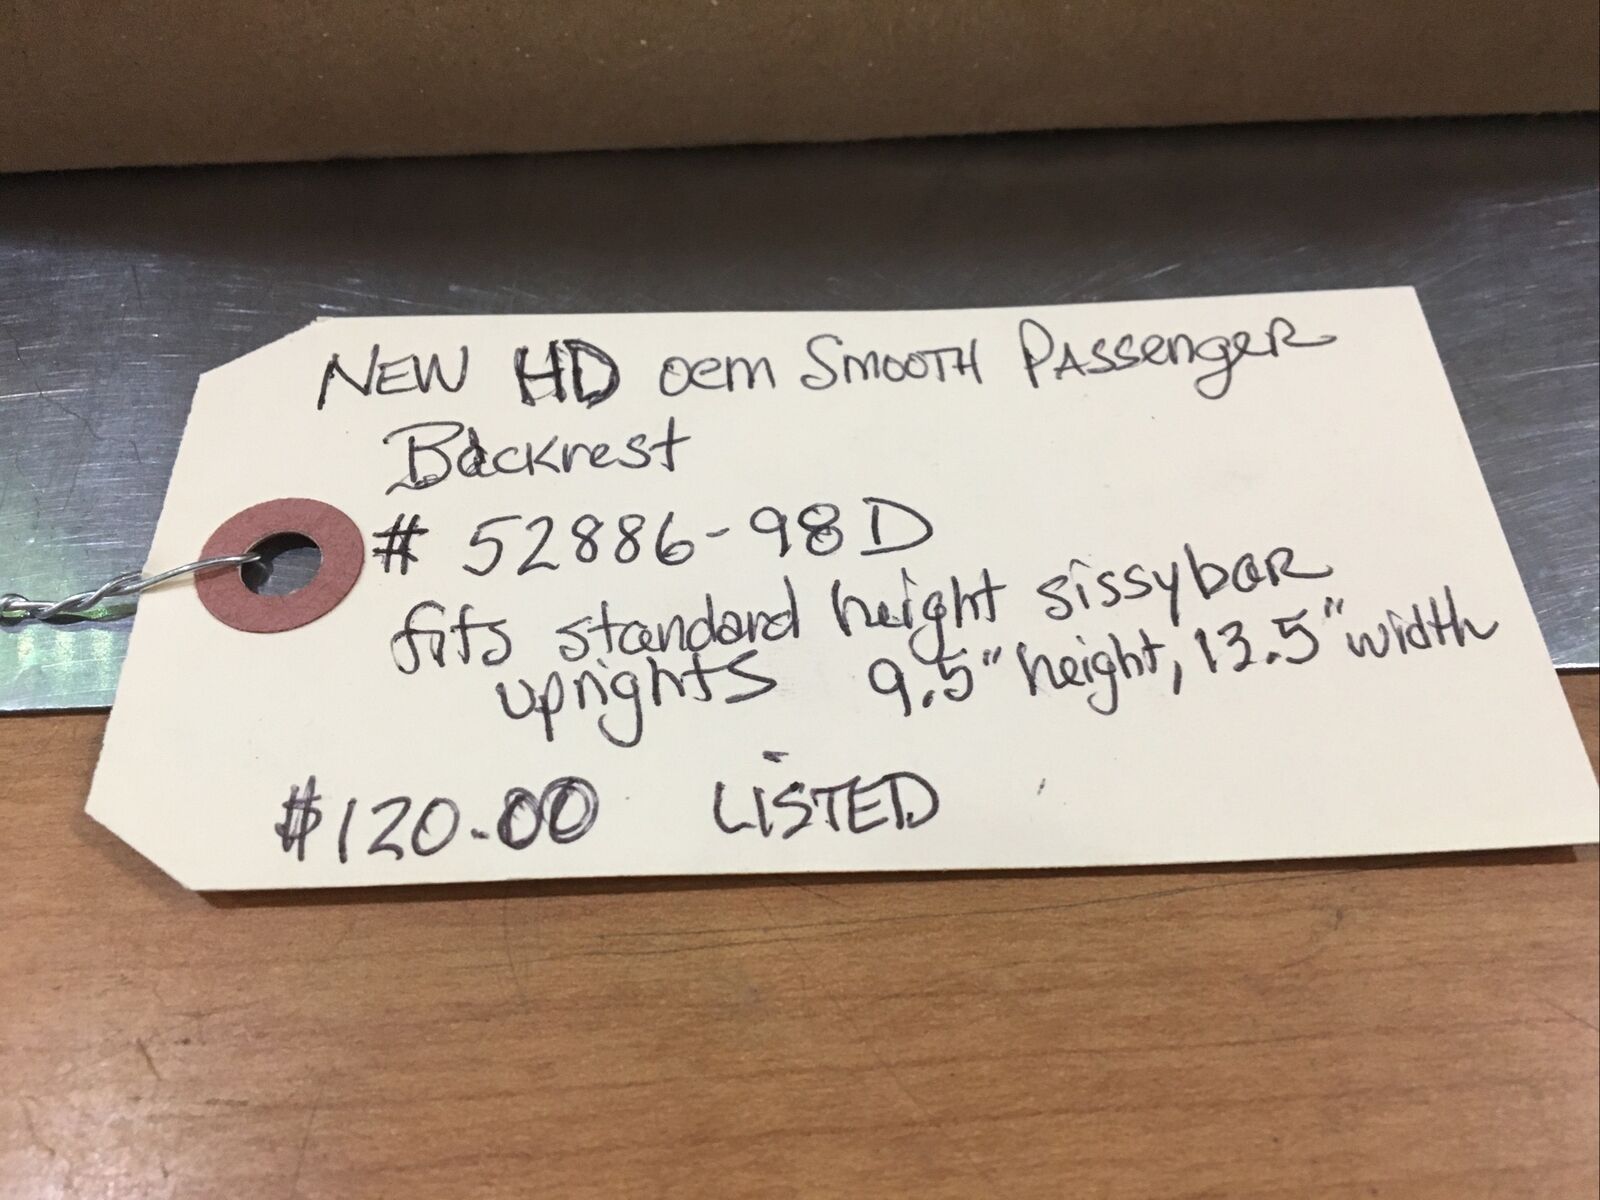 NEW HD oem SMOOTH PASSENGER
Backrest
# 52886-98D
fits standard height sissybar
uprights 9.5" height, 13.5" width
$120.00 LISTED